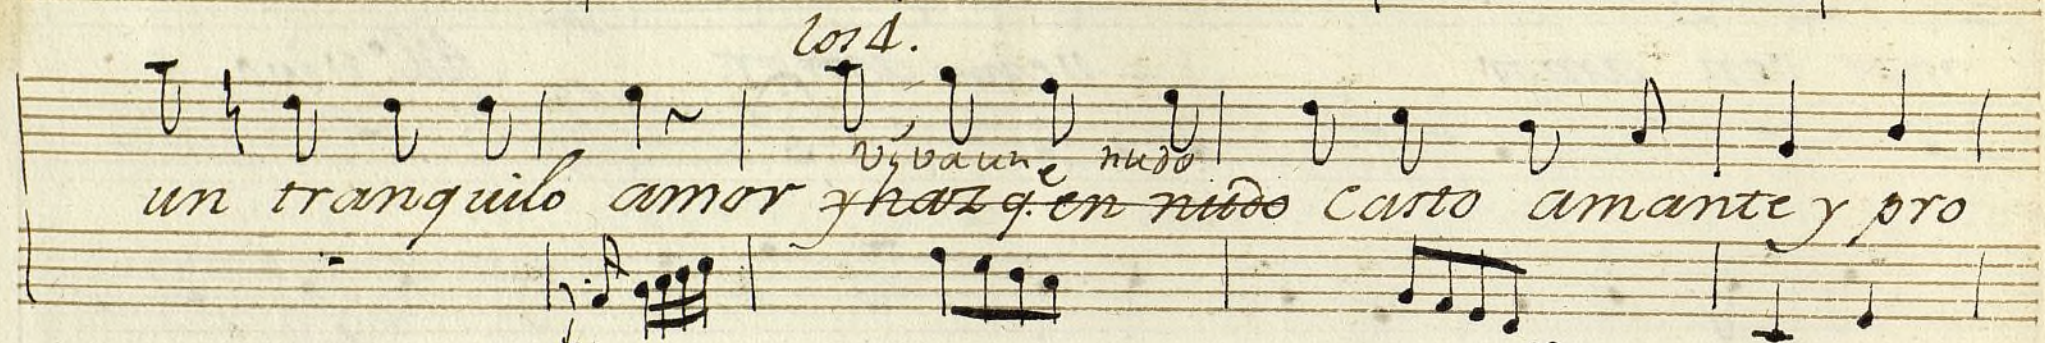 los 4.
viva un nudo
un tranquilo amor y haz q.e en nudo casto amante y pro